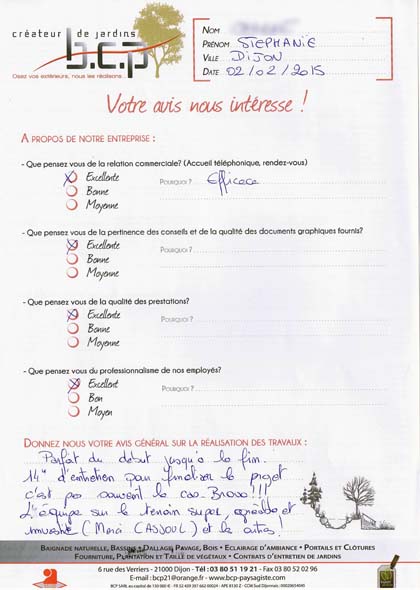 créateur de jardins
b.c.p
Osez vos extérieurs, nous les réalisons...
NOM
PRÉNOM STEPHANIE
VILLE DIJON
DATE 02/02/2015
Votre avis nous intéresse !
A PROPOS DE NOTRE ENTREPRISE :
- Que pensez vous de la relation commerciale? (Accueil téléphonique, rendez-vous)
Excellente POURQUOI ? Efficace
Bonne
Moyenne
- Que pensez vous de la pertinence des conseils et de la qualité des documents graphiques fournis?
Excellente POURQUOI ?
Bonne
Moyenne
- Que pensez vous de la qualité des prestations?
Excellente POURQUOI ?
Bonne
Moyenne
- Que pensez vous du professionnalisme de nos employés?
Excellent POURQUOI ?
Bon
Moyen
DONNEZ NOUS VOTRE AVIS GÉNÉRAL SUR LA RÉALISATION DES TRAVAUX :
Parfait du début jusqu'à la fin.
d'entretien pour finaliser le projet
c'est pas souvent le cas - Bravo !!!
L'équipe sur le terrain super, agréable et
(Merci ) et les autres !
BAIGNADE NATURELLE, BASSINS • DALLAGE, PAVAGE, BOIS • ECLAIRAGE D'AMBIANCE • PORTAILS ET CLÔTURES
FOURNITURE, PLANTATION ET TAILLE DE VÉGÉTAUX • CONTRATS D'ENTRETIEN DE JARDINS
6 rue des Verriers - 21000 Dijon - Tél : 03 80 51 19 21 - Fax 03 80 52 02 96
E-mail : bcp21@orange.fr - www.bcp-paysagiste.com